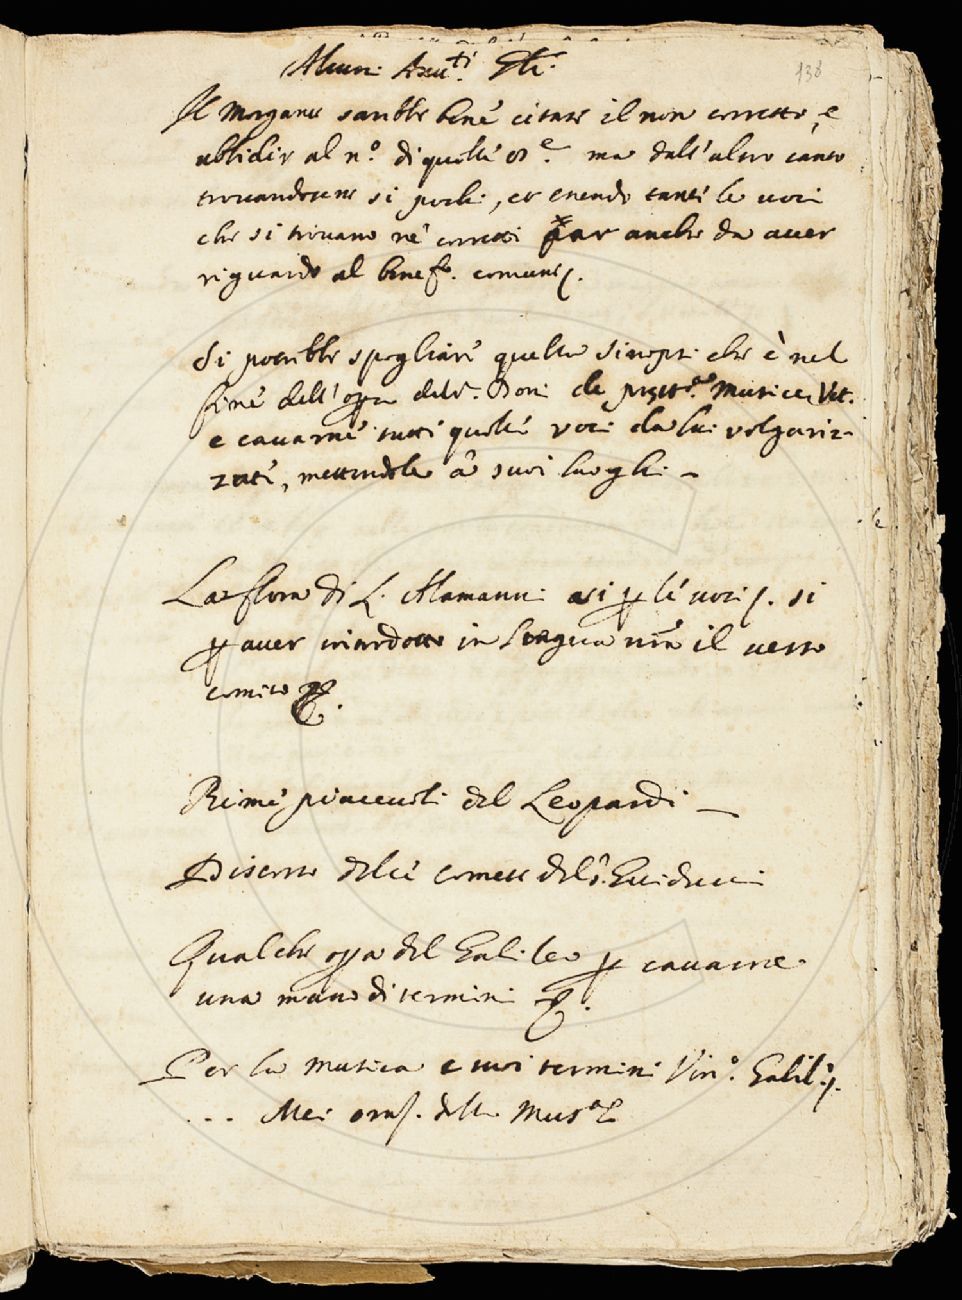 138
Alcuni Avv.ti
Il Morgante sarebbe bene citare il non corretto, e
ubbidir al n.o di quelle 8.e ma dall'altro canto
trovandosene sì pochi, et essendo tante le voci
che si trovano ne' corretti par anche da aver
riguardo al benef.o comune.
Si potrebbe spogliare quella Sinopsi che è nel
fine dell'opa del S. Doni de prest.a Musicae Vet.
e cavarne tutte quelle voci da lui volgariz-
zate, mettendole a suoi luoghi. –
La Flora di L. Alamanni. asi p le voci. si
p aver introdotto in lingua nra il verso
comico
Rime piacevoli del Leopardi –
Discorso delle comete del S. Guiducci
Qualche opa del Galileo p cavarne
una mano di termini
Per la musica e suoi termini Vin.o Galil.i
... Mei della Mus.a